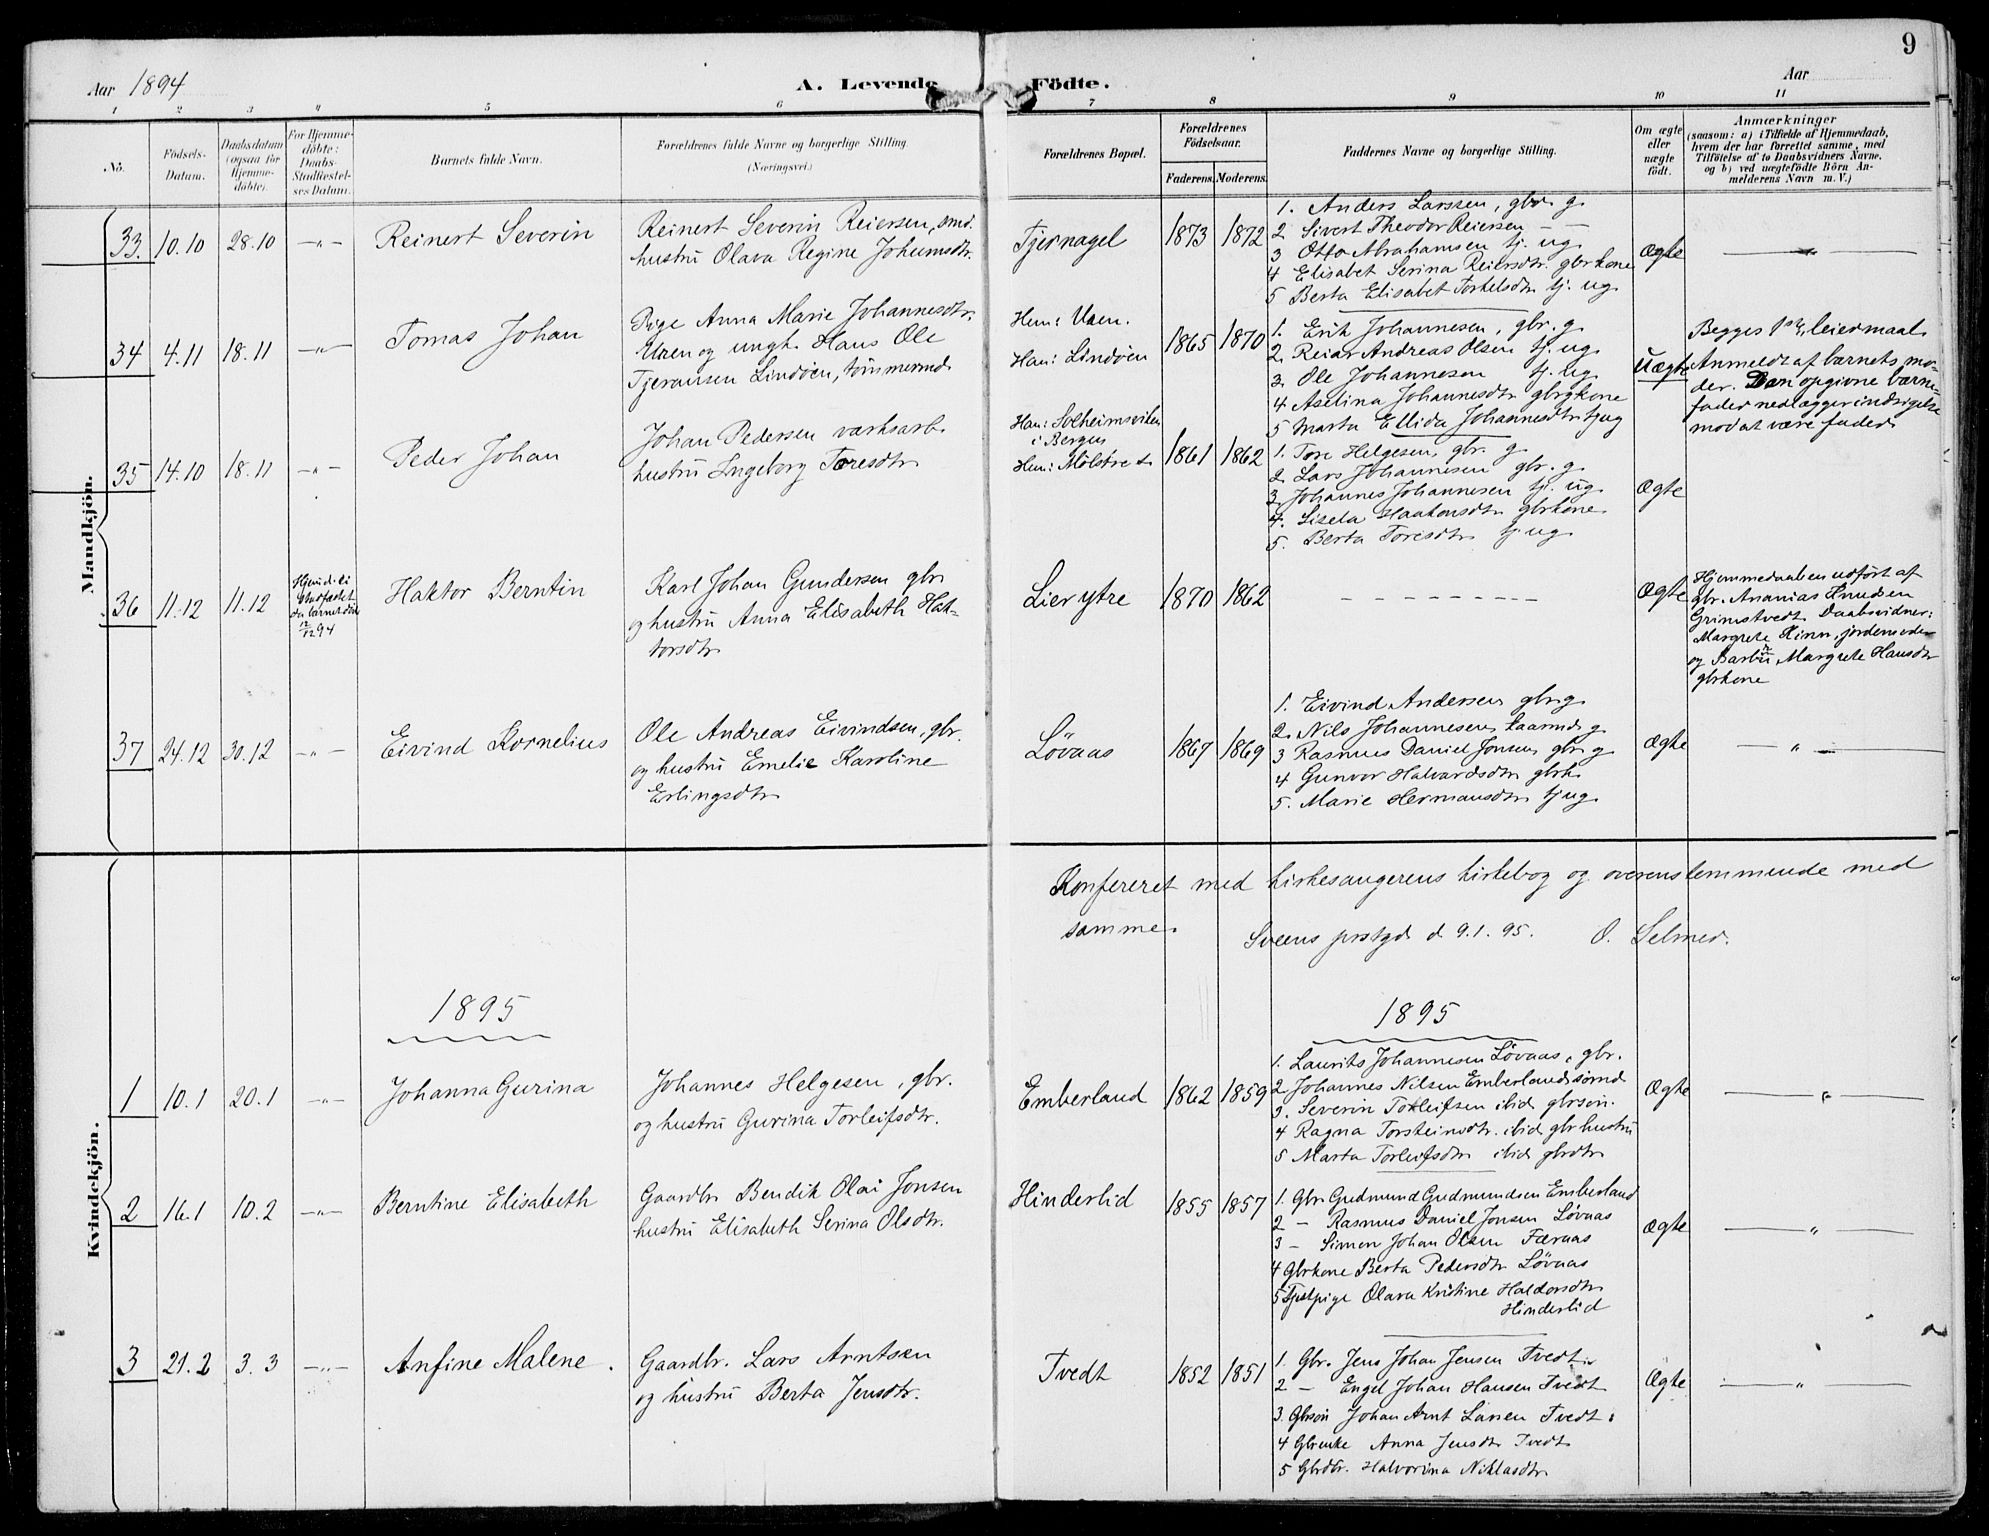 9
Aar 1894
A. Levende
Födte.
Aar
1 2 3 4 5 6 7 8 9 10 11
No.
Födsels-
Datum.
Daabsdatum
(ogsaa for
Hjemme-
döbte).
For Hjemme-
döbte:
Daabs-
Stadfæstel-
ses Datum.
Barnets fulde Navn.
Forældrenes fulde Navne og borgerlige Stilling.
(Næringsvei.)
Forældrenes Bopæl.
Forældrenes
Födselsaar.
Faderens. Moderens.
Faddernes Navne og borgerlige Stilling.
Om ægte
eller
uægte
födt.
Anmærkninger
(saasom: a) i Tilfælde af Hjemmedaab,
hvem der har forrettet samme, med
Tilföielse af to Daabsvidners Navne,
og b) ved uægtefödte Börn An-
melderens Navn m. V.)
Mandkjön.
33. 10.10 28.10 —„— Reinert Severin
Reinert Severin Reiersen, smd.
hustru Olava Regine Johumsdtr.
Tjernagel 1873 1872
1. Anders Larssen, gbr. g.
2 Sivert Theodor Reiersen — —
3 Otto Abrahamsen tj. ug.
4 Elisabet Serina Reiersdtr. gbrkone
5 Berta Elisabet Torkelsdtr tj. ug.
Ægte —„—
34 4.11 18.11 —„— Tomas Johan
Pige Anna Marie Johannesdtr.
Uren og ungk. Hans Ole
Tjeransen Lindøen, tømmermd.
Hun: Uren.
Han: Lindøen
1865 1870
1. Erik Johannesen, gbr. g.
2. Reiar Andreas Olsen tj. ug.
3. Ole Johannesen tj. ug.
4 Aselina Johannesdtr gbrgkone
5 Marta Ellida Johannesdtr tjug
Uægte
Begges 1ste leiermaal.
Anmeldt af barnets mo-
der. Den opgivne barne-
fader nedlægger indsigelse
mod at være fader.
35 14.10 18.11 —„— Peder Johan
Johan Pedersen værksarb.
hustru Ingeborg Toresdtr.
Han: Solheimsviken
i Bergen
Hun: Mølstre
1861 1862
1. Tore Helgesen, gbr. g.
2. Lars Johannesen gbr. g.
3. Johannes Johannesen tj. ug.
4. Sisela Haakonsdtr gbrkone.
5. Berta Toresdtr tj ug.
Ægte
36 11.12 11.12
stadfæstet
12/12 94
Haktor Berntin
Karl Johan Gundersen gbr
og hustru Anna Elisabeth Hak-
torsdtr
Lier ytre 1870 1862 — — — — — — Ægte
Hjemmedaaben udført af
gbr. Ananias Knudsen
Grimstvedt. Daabsvidner:
Margrete Kinn, jordemoder
og Barbru Margrete Hansdtr
gbrkone
37 24.12 30.12 —„— Eivind Kornelius
Ole Andreas Eivindsen, gbr.
og hustru Emelie Karoline
Erlingsdtr
Løvaas 1867 1869
1. Eivind Andersen gbr g.
2. Nils Johannesen, g.
3 Rasmus Daniel Jonsen, gbr. g
4 Gunvor Halvardsdtr gbrk.
5. Marie Hermansdtr tj ug.
Ægte —„—
Konfereret med kirkesangerens kirkebog og overenstemmende med
samme.
Sveens prstgd d. 9.1.95. O. Selmer.
Kvindekjön.
1895 1895
1 10.1 20.1 —„— Johanna Gurina
Johannes Helgesen, gbr.
og hustru Gurina Torleifsdtr.
Emberland 1862 1859
1. Laurits Johannesen Løvaas, gbr.
2. Johannes Nilsen Emberland, sømd
3. Severin Torleifsen ibid gbrsøn.
4 Ragna Torsteinsdtr. ibid gbr hustru
5 Marta Torleifsdtr ibid gbrdtr
Ægte —„—
2 16.1 10.2 —„— Berntine Elisabeth
Gaardbr Bendik Olai Jonsen
hustru Elisabeth Serina Olsdtr.
Hinderlid 1855 1857
1. Gbr Gudmund Gudmundsen Emberland
2 — Rasmus Daniel Jonsen Løvaas
3 — Simon Johan Olsen Færaas
4 Gbrkone Berta Pedersdtr Løvaas
5 Tjstpige Olava Kristine Haldorsdtr
Hinderlid
Ægte —„—
3 21.2 3.3 —„— Anfine Malene.
Gaardbr. Lars Arntsen
og hustru Berta Jensdtr.
Tvedt 1852 1851
1. Gbr. Jens Johan Jensen Tvedt
2 — Engel Johan Hansen Tvedt
3. Gbrsøn Johan Arnt Larsen Tvedt.
4 Gbrenke Anna Jensdtr Tvedt
5 Gbrdtr. Halvorina Niklasdtr
Ægte —„—